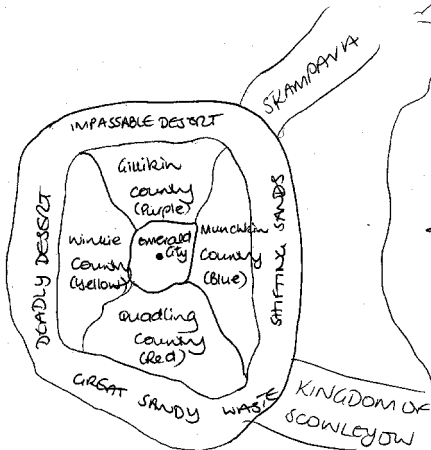 SKAMPAVIA
IMPASSABLE DESERT
Gillikin
Country
(Purple)
DEADLY DESERT
Winkie
Country
(Yellow)
Emerald
City
Munchkin
Country
(Blue)
SHIFTING SANDS
Quadling
Country
(Red)
GREAT SANDY WASTE
KINGDOM OF
SCOWLEYOW